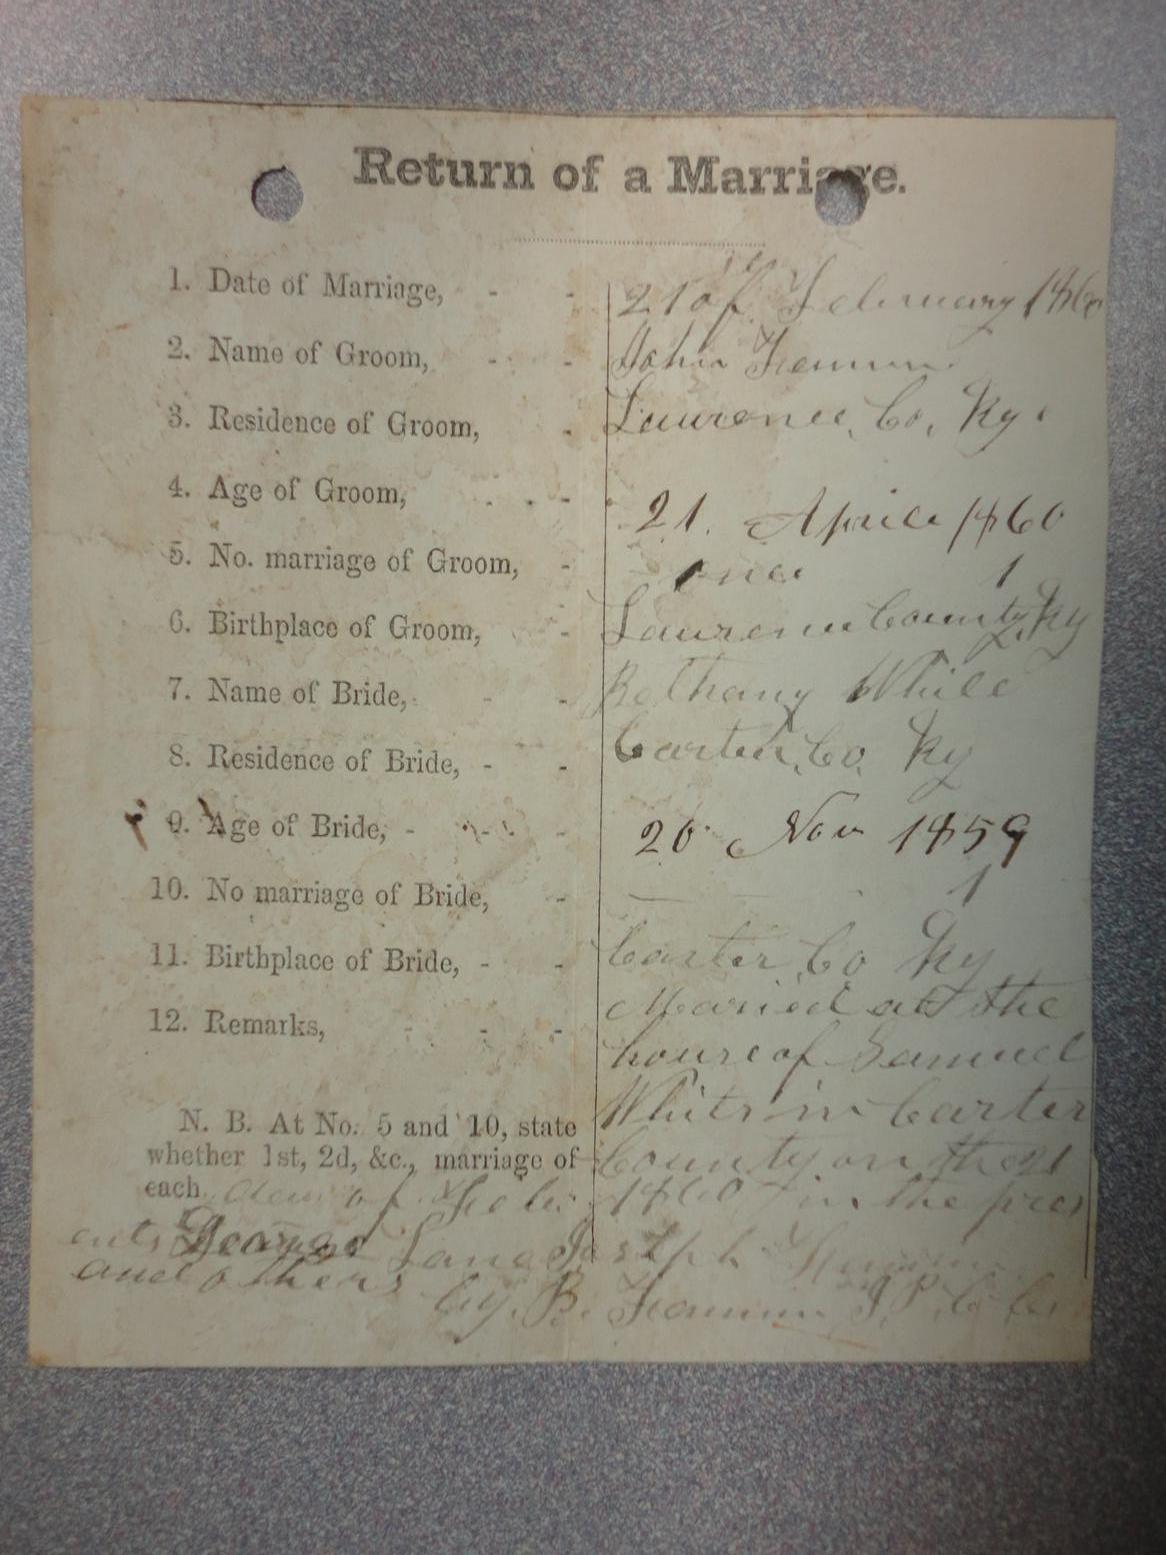 Return of a Marriage.
1. Date of Marriage, - - 21 of February 1860
2. Name of Groom, - - John
3. Residence of Groom, - Lawrence, Co, Ky.
4. Age of Groom, - - - 21. Aprile 1860
5. No. marriage of Groom, - once 1
6. Birthplace of Groom, - Lawrence County, Ky
7. Name of Bride, - - Bethany White
8. Residence of Bride, - - Carter, Co, Ky
9. Age of Bride, - - - 20 Nov 1859
10. No marriage of Bride, - 1
11. Birthplace of Bride, - - Carter, Co Ky
12. Remarks, - - - Maried at the
house of Samuel
Whits in Carter
N. B. At No. 5 and 10, state
whether 1st, 2d, &c., marriage of County on the 21
each. of Feb. 1860 in the pres
ents George Lane Joseph
and others by. B. J P C C